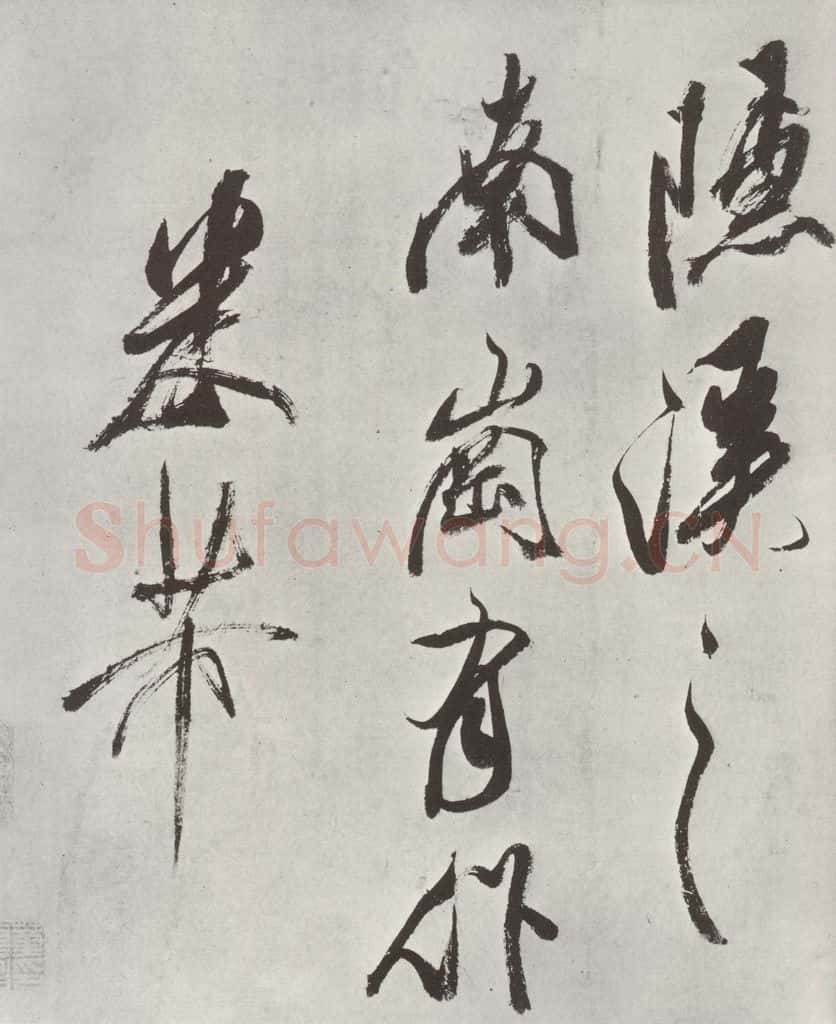 隱溪之
南崗有
米芾
Shufawang.CN